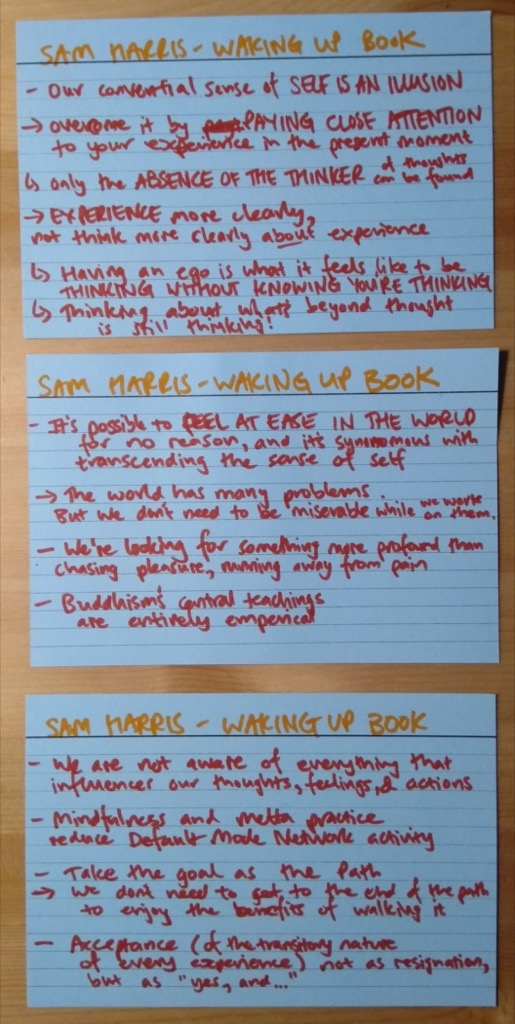 SAM HARRIS - WAKING UP BOOK
- Our convential sense of SELF IS AN ILLUSION
→ overcome it by PAYING CLOSE ATTENTION
to your experience in the present moment
↳ only the ABSENCE OF THE THINKER of thoughts can be found
→ EXPERIENCE more clearly,
not think more clearly about experience
↳ Having an ego is what it feels like to be
THINKING WITHOUT KNOWING YOU'RE THINKING
↳ Thinking about what's beyond thought
is still thinking!
SAM HARRIS - WAKING UP BOOK
- It's possible to FEEL AT EASE IN THE WORLD
for no reason, and it's synonomous with
transcending the sense of self
→ The world has many problems.
But we don't need to be miserable while we work on them.
- We're looking for something more profound than
chasing pleasure, running away from pain
- Buddhism's central teachings
are entirely emperical
SAM HARRIS - WAKING UP BOOK
- We are not aware of everything that
influences our thoughts, feelings, & actions
- Mindfulness and metta practice
reduce Default Mode Network activity
- Take the goal as the Path
→ We don't need to get to the end of the path
to enjoy the benefits of walking it
- Acceptance (of the transitory nature
of every experience) not as resignation,
but as "yes, and..."